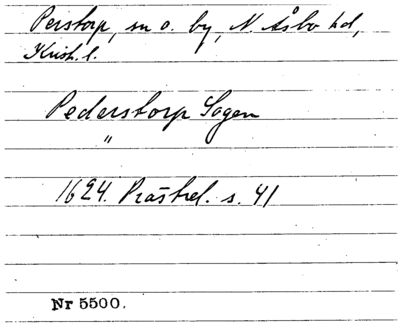 Perstorp, sn o. by, N. Åsbo hd,
Krist. l.
Pederstorp Sogen
"
1624. Prästrel. s. 41
Nr 5500.